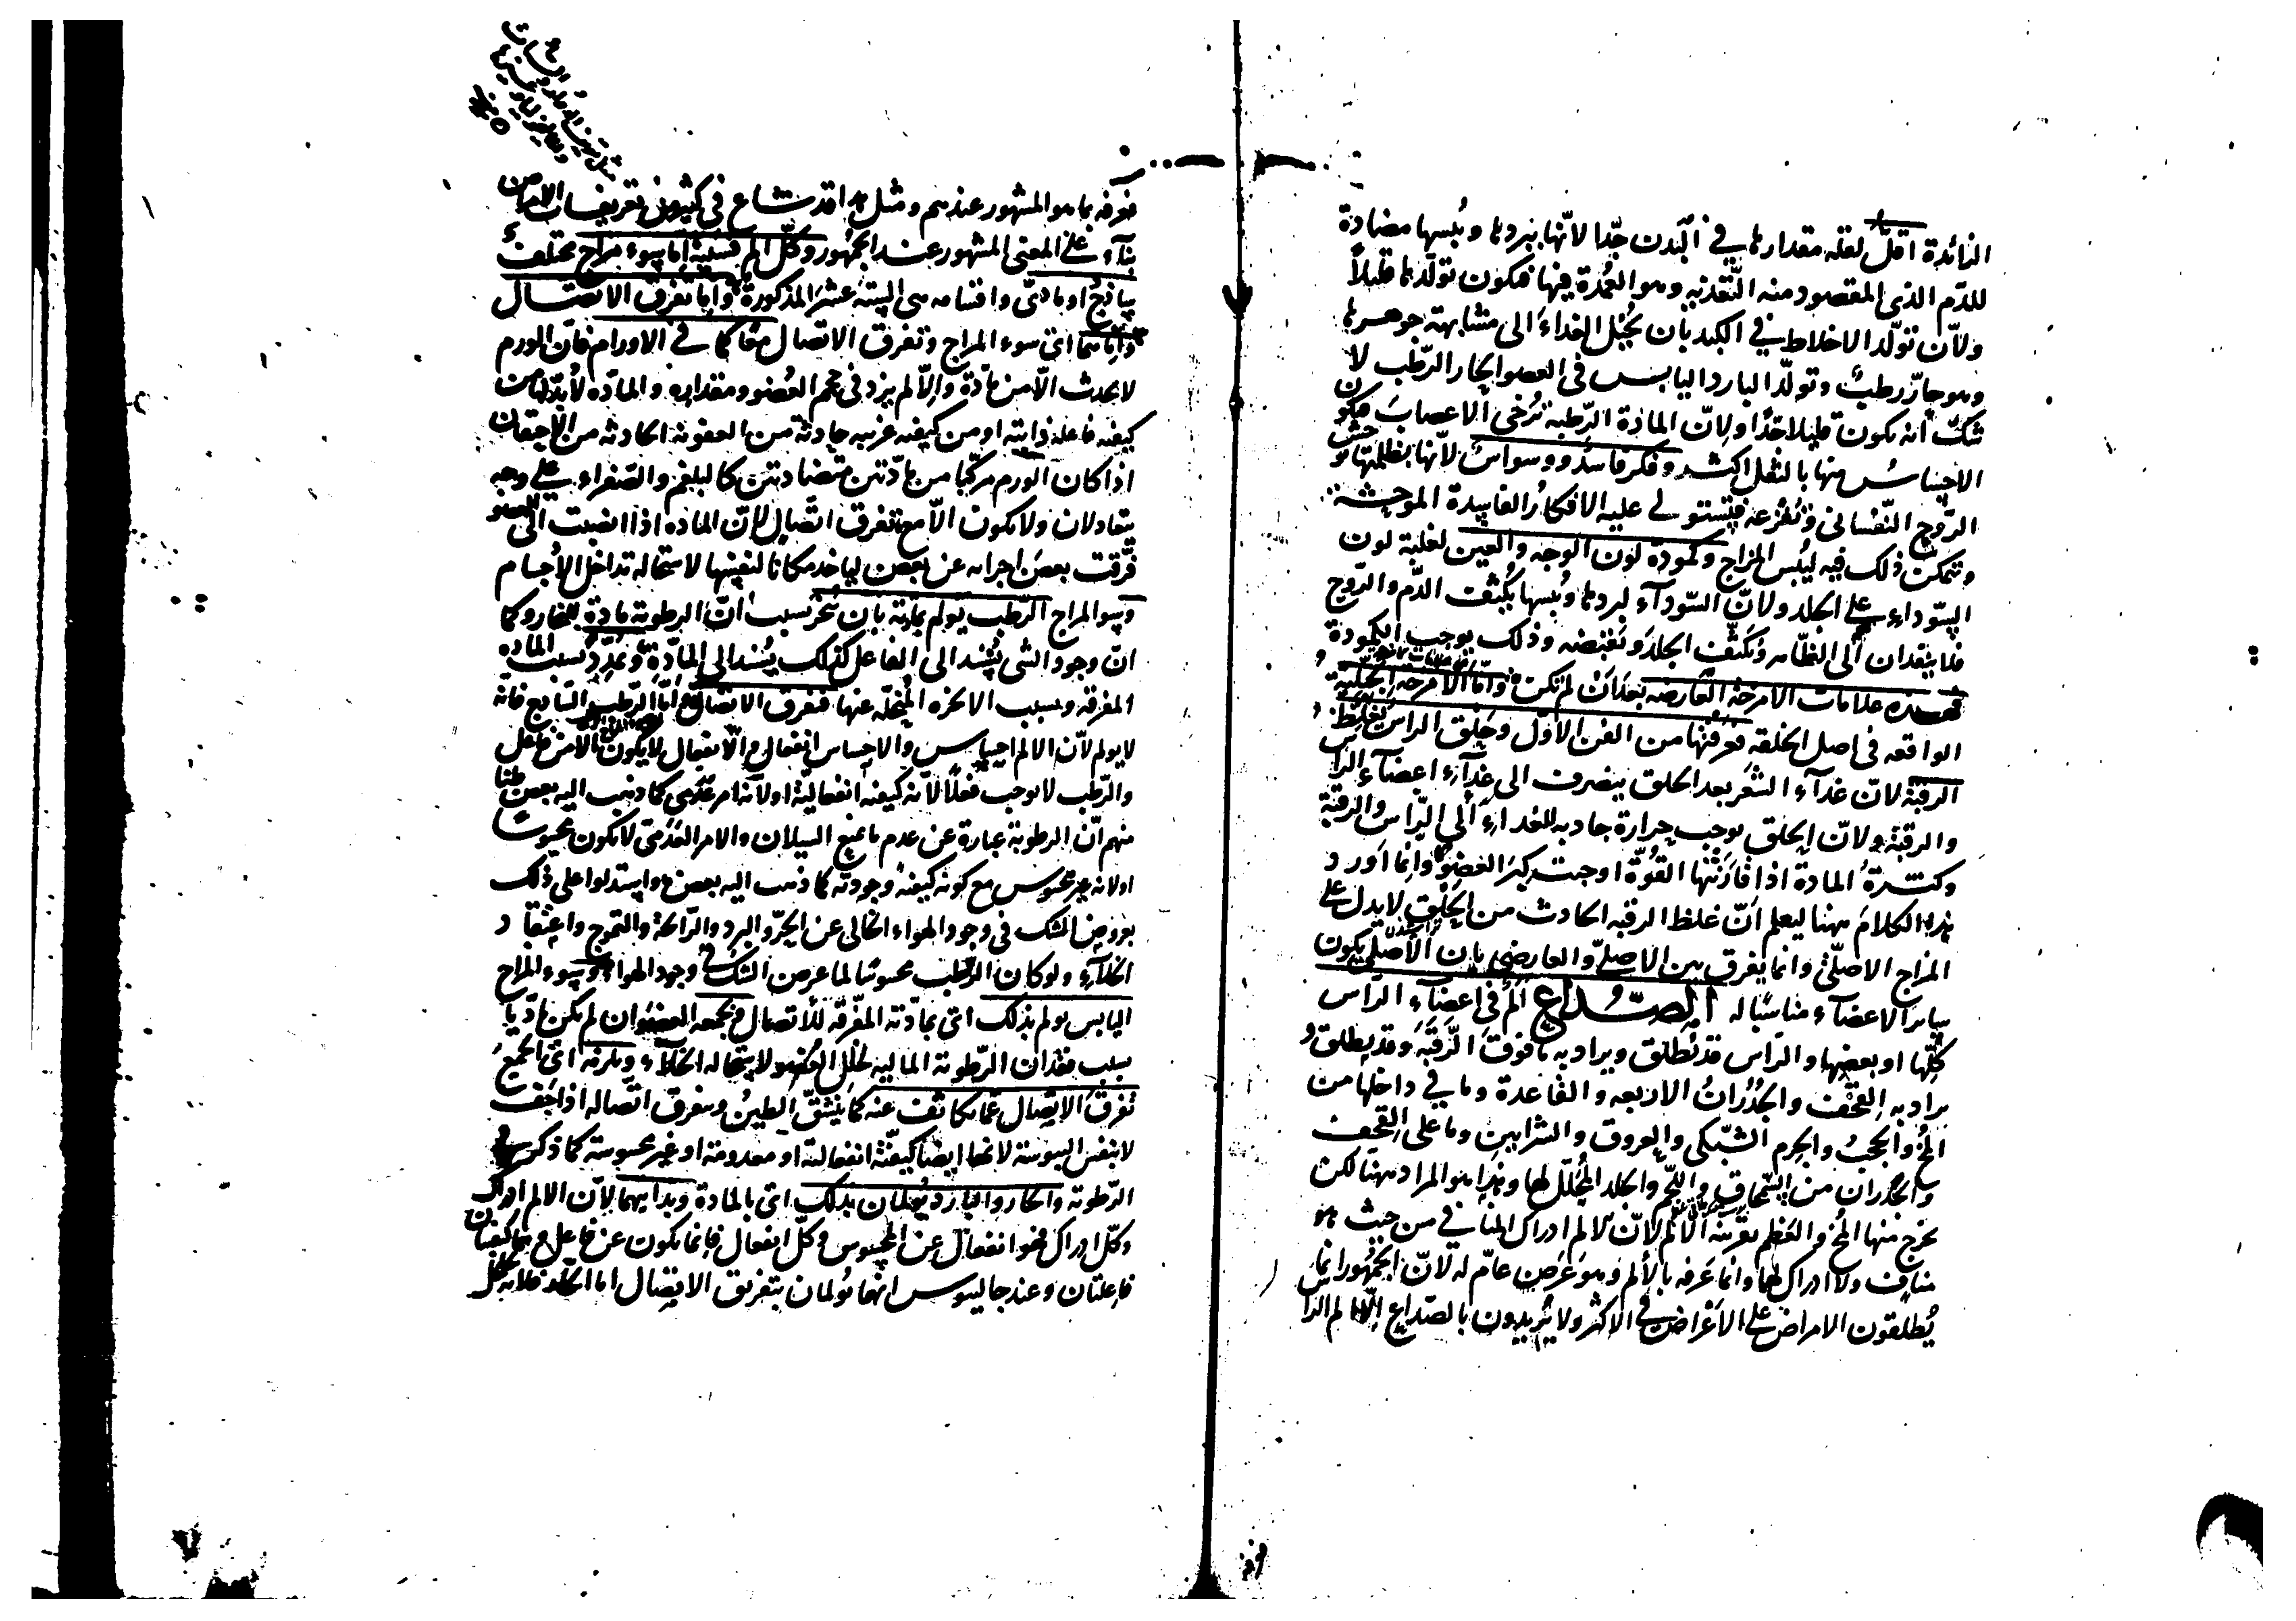 الزائدة اقل لقلة مقدارها في البدن جدّا لانّها ببردها ويُبسها مضادة
للدّم الذى المقصود منه التّغذيه وهو العُمدة فيها فيكون تولّدها قليلاً
ولانّ تولّد الاخلاط في الكبد بأن تُحيل الغذاءَ الى مشابهة جوهرها
وهو حارّ رطبٌ وتولّد البارد اليابس فى العضو الحار الرّطب لا
شكّ انه يكون قليلا جدّا ولانّ المادة الرّطبة تُرخى الاعصاب فيكون
الاحساسُ منها بالثقل اكثر وفكر فاسد ووسواسٌ لانّها بظلمتها توحش
الرّوح النّفسانى وتُفزعه فيستولى عليه الافكارُ الفاسدة الموحشة
ويتمكن ذلك فيه ليُبس المزاج وكمودة لون الوجه والعين لغلبة لون
السّوداء على الجلد ولانّ السّوداء لبردها ويُبسها يكثف الدّم والرّوح
فلا ينفذان الى الظّاهر وتكثّف الجلدَ وتقبضه وذلك يوجب الكمودة
فهذه علامات الامزجة العارضه بعد ان لم تكن وامّا الامزجة الجبليّة
الواقعه فى اصل الخلقه فتعرفها من الفن الاوّل وحلق الراس يُغلّظ
الرقبة لانّ غذآء الشعر بعد الحلق ينصرف الى غذآء اعضآء الراس
والرقبة ولانّ الحلق يوجب حرارة جاذبه للغدآء الى الرّاس والرقبة
وكثرةُ المادة اذا قارنتها القوّة اوجبت كبَر العضو وانما اورد
هذا الكلام ههنا ليعلم انّ غلظ الرقبه الحادث من الحلق لا يدل على
المزاج الاصلىّ وانما يفرق بين الاصلىّ والعارضى بان الاصلى يكون
ساير الاعضآء مناسبًا له الصّداع الم فى اعضآء الرّاس
كلّها او بعضها والرّاس قد يُطلق ويراد به ما فوق الرّقبة وقد يطلق و
يراد به القحف والجُدُرانُ الاربعه والقاعدة وما فى داخلها من
المخ والحجب والجرم الشّبكى والعروق والشرايين وما على القحف
والجُدران من السّمحاق واللّحم والجلد المُجلّل لها وهذا هو المراد ههنا لكن
يخرج منها المخ والعظم بقرينة الالم لانّ الالم ادراك المنافي من حيث هو
منافٍ ولا ادراك لهما وانما عَرفه بالألم وهو عَرَض عامّ له لانّ الجمهور انما
يُطلقون الامراض على الاعراض في الاكثر ولا يُريدون بالصّداع الّا الم الراس
فعرفه بما هو المشهور عندهم ومثل هذا قد شاع فى كثير من تعريفات الامراض
بنآء على المعنى المشهور عند الجمهور وكلّ الم فسببه امّا سوء مزاج مختلف
ساذج او مادىّ واقسامه هى الستة عشر المذكورة وامّا تفرق الاتصال
وامّا هما اى سوء المزاج وتفرق الاتصال معًا كما في الاورام فانّ الورم
لا يحدث الّا من مادّة والّا لم يزد فى حجم العُضو ومقداره والمادّه لا بدّ لها من
كيفيّه فاعله ذاتيه او من كيفيّه غريبه حادثة من العفونة الحادثه من الاحتقان
اذا كان الورم مركّبا من مادّتين متضادتين كالبلغم والصّفراء على وجه
يتعادلان ولا يكون الّا مع تفرق اتّصال لانّ الماده اذا انصبت الى العضو
فرّقت بعضَ اجزائه عن بعض لياخذ مكانا لنفسها لاستحالة تداخل الأجسام
وسوء المزاج الرّطب يولم بمادّته بان يبخر بسبب انّ الرطوبة مادة للبخار وكما
انّ وجود الشى يُسند الى الفاعل كذلك يُسند الى المادّة وتمدّد بسبب الماده
المفرقه وبسبب الابخره المُنحلّه عنها فتفرق الاتصال امّا الرّطب السّاذج فانه
لا يولم لانّ الالم احساس والاحساس انفعال والّانفعال لا يكون الا من فاعل
والرّطب لا يوجب فعلًا لانه كيفيّه انفعاليّة او لانّه امر عَدَمى كما ذهب اليه بعض ظنًا
منهم انّ الرطوبة عبارة عن عدم مانع السيلان والامر العَدَمى لا يكون محسوسًا
او لانه غير محسوس مع كونه كيفيّة وجوديّة كما ذهب اليه بعض واستدلوا على ذلك
بعروض الشك فى وجود الهواء الخالى عن الحرّ والبرد والرّائحة والتموج واعتقاد
الخلآء ولو كان الرّطب محسوسًا لما عرض الشك فى وجود الهواء وسوء المزاج
اليابس يولم بذلك اى بمادّته المفرّقه للاتصال وبجمعه العضو ان لم يكن مادّيًا
بسبب فقدان الرّطوبة المالية لخلل العُضو لاستحاله الخلآء ويلزمه اى الجمع
تفرق الاتصال عمّا يكاثف عنه كما ينشقّ الطين ويتفرق اتّصاله اذا جَفّ
لا بنفس اليبوسة لانها ايضا كيفيّة انفعاليّة او معدومة او غير محسوسة كما ذكر فى
الرّطوبة والحار والبارد يُولمان بذلك اى بالمادة وبذاتيهما لانّ الالم ادراك
وكلّ ادراك فهو انفعال عن المحسوس وكلّ انفعال فانما يكون عن فاعل وهما كيفيتان
فاعلتان وعند جالينوس انهما يُولمان بتفريق الاتصال اما الحار فلانه يُحلل